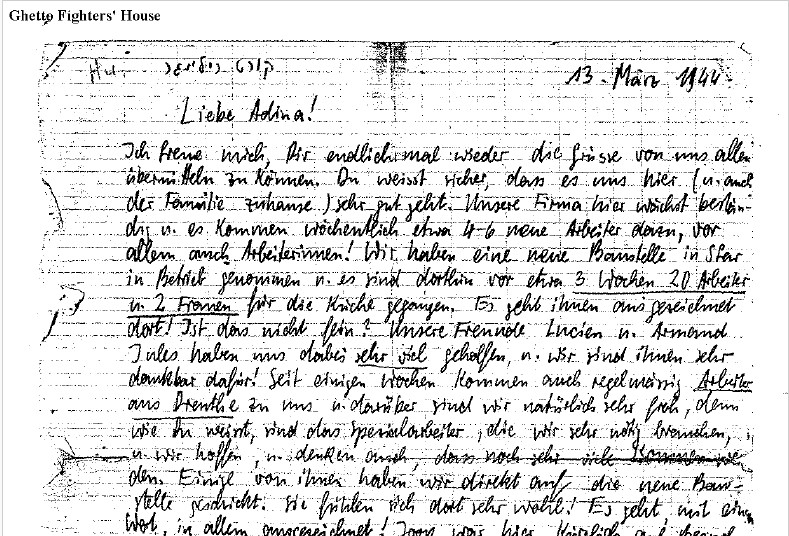 Ghetto Fighters' House
Hu. קורט ריליינגר
13. März 1944.
Liebe Adina!
Ich freue mich, Dir endlich mal wieder die Grüsse von uns allen
übermitteln zu können. Du weisst sicher, dass es uns hier (u. auch
der Familie zuhause) sehr gut geht. Unsere Firma hier wächst bestän-
dig u. es kommen wöchentlich etwa 4-6 neue Arbeiter dazu, vor
allem auch Arbeiterinnen! Wir haben eine neue Baustelle in Sfar
in Betrieb genommen u. es sind dorthin vor etwa 3 Wochen 20 Arbeiter
u. 2 Frauen für die Küche gegangen. Es geht ihnen ausgezeichnet
dort! Ist das nicht fein? Unsere Freunde Lucien u. Armand
Jules haben uns dabei sehr viel geholfen, u. wir sind ihnen sehr
dankbar dafür! Seit einigen Wochen kommen auch regelmässig Arbeiter
aus Drenthe zu uns u. darüber sind wir natürlich sehr froh, denn
wie Du weisst, sind das Spezialarbeiter, die wir sehr nötig brauchen,
u. wir hoffen, u. denken auch, dass noch sehr viele kommen wer-
den. Einige von ihnen haben wir direkt auf die neue Bau-
stelle geschickt. Sie fühlen sich dort sehr wohl! Es geht mit einem
Wort, in allem ausgezeichnet! war hier kürzlich auf